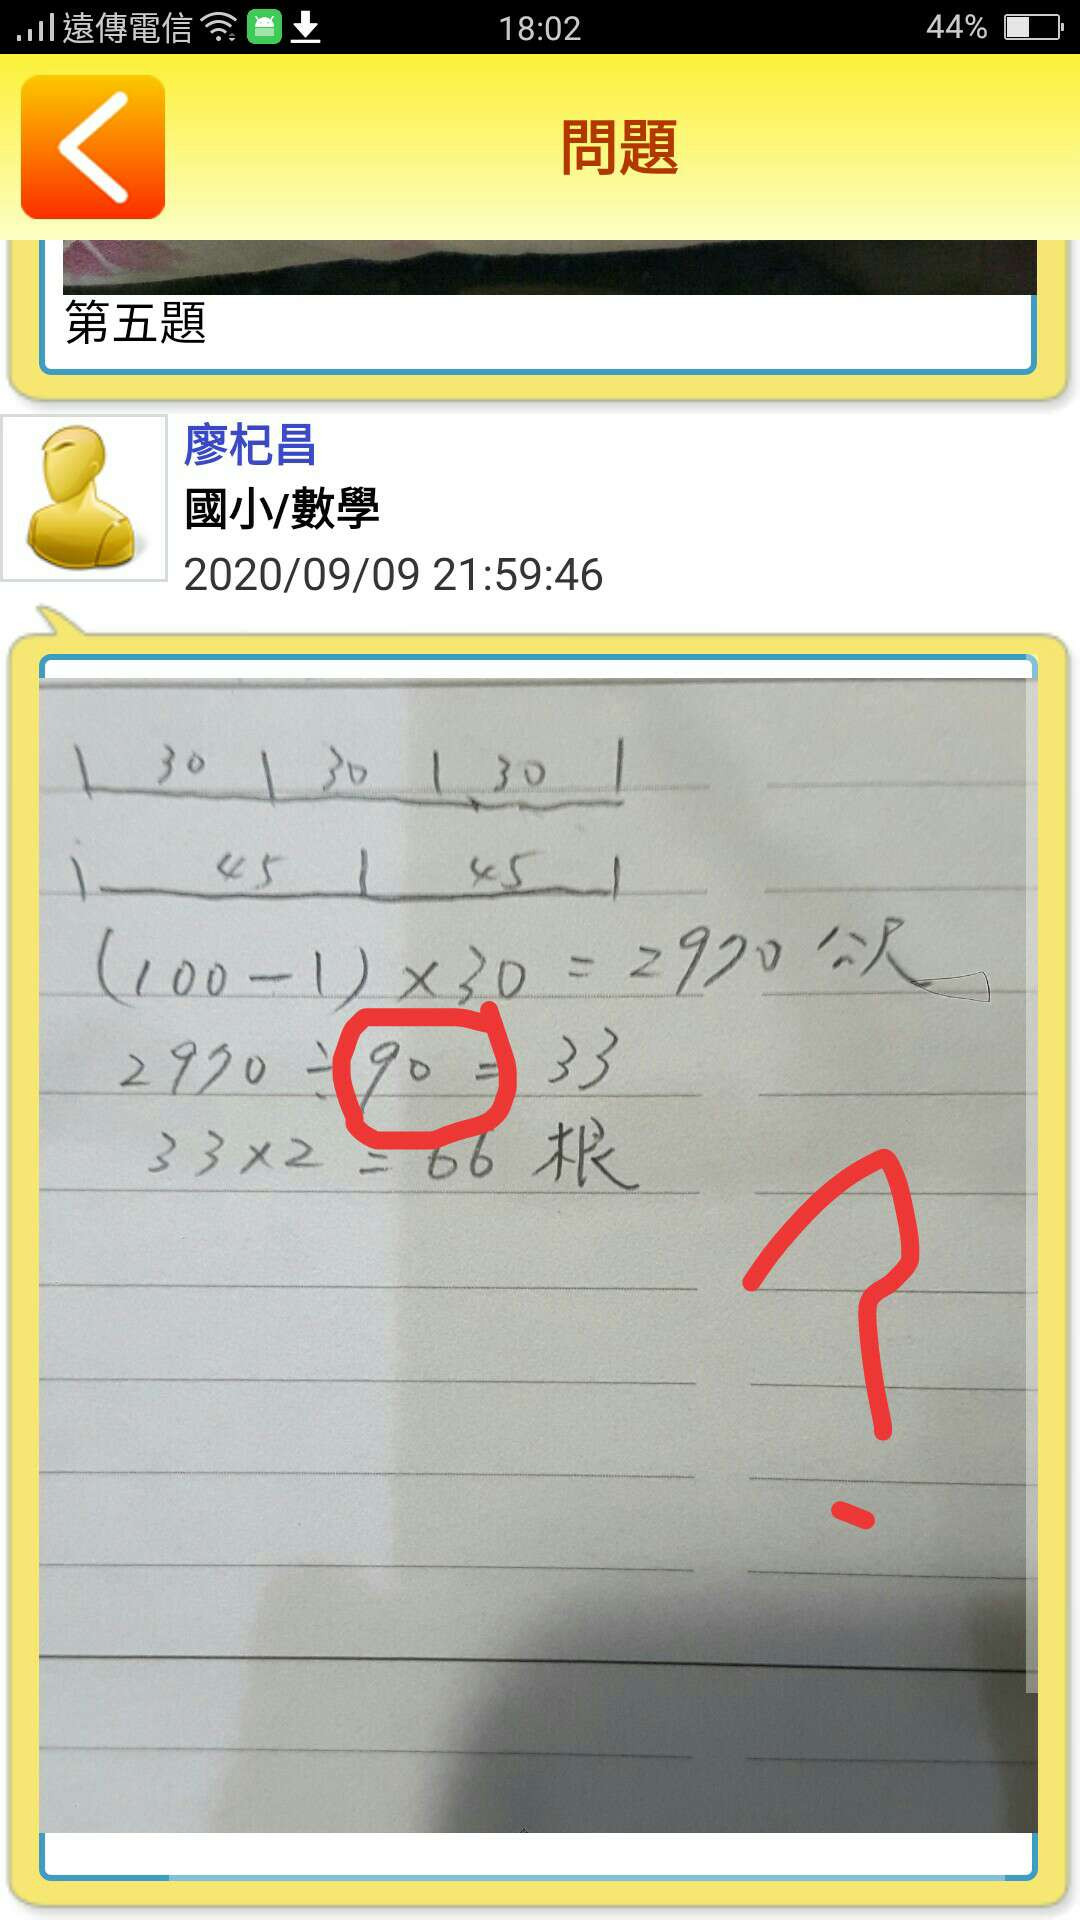 遠傳電信
18:02
44%
問題
第五題
廖杞昌
國小/數學
2020/09/09 21:59:46
30 30 30
45 45
(100-1)×30=2970公尺
2970÷90=33
33×2=66根
?